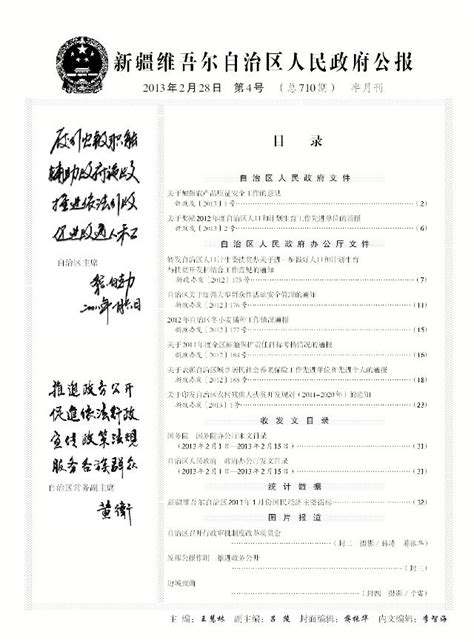 新疆维吾尔自治区人民政府公报
2013年2月28日 第4号 (总710期) 半月刊
自治区主席
推进政务公开
促进依法行政
宣传政策法规
服务各族群众
自治区常务副主席
黄卫
目 录
自治区人民政府文件
关于加强农产品质量安全工作的意见
新政发〔2013〕1号 (2)
关于表彰2012年度自治区人口和计划生育工作先进单位的通报
新政发〔2013〕2号 (6)
自治区人民政府办公厅文件
转发自治区人口计生委扶贫办关于进一步做好人口和计划生育
与扶贫开发相结合工作意见的通知
新政办发〔2012〕175号 (7)
自治区关于加强大型群众性活动安全管理的通知
新政办发〔2012〕176号 (11)
2012年自治区冬小麦播种工作情况通报
新政办发〔2012〕177号 (15)
关于2011年度全区耕地保护责任目标考核情况的通报
新政办发〔2012〕184号 (16)
关于表彰自治区城乡居民社会养老保险工作先进单位和先进个人的通报
新政办发〔2012〕188号 (18)
关于印发自治区农村残疾人扶贫开发规划(2011-2020年)的通知
新政办发〔2013〕1号 (23)
收发文目录
国务院 国务院办公厅来文目录
(2013年2月1日—2013年2月15日) (31)
自治区人民政府 政府办公厅发文目录
(2013年2月1日—2013年2月15日) (31)
统计数据
新疆维吾尔自治区2013年1月份国民经济主要指标 (32)
图片报道
自治区召开行政审批制度改革动员会
发挥公报作用 推进政务公开
(封三)
边城夜曲
主 编:王慧林 副主编:吕 俊 封面编辑:蒋祖华 内文编辑:李智海